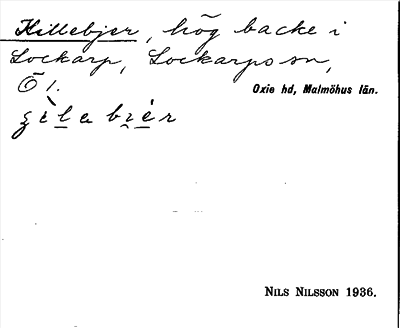 Killebjer, hög backe i
Lockarp, Lockarps sn,
Ö 1. Oxie hd, Malmöhus län.
NILS NILSSON 1936.